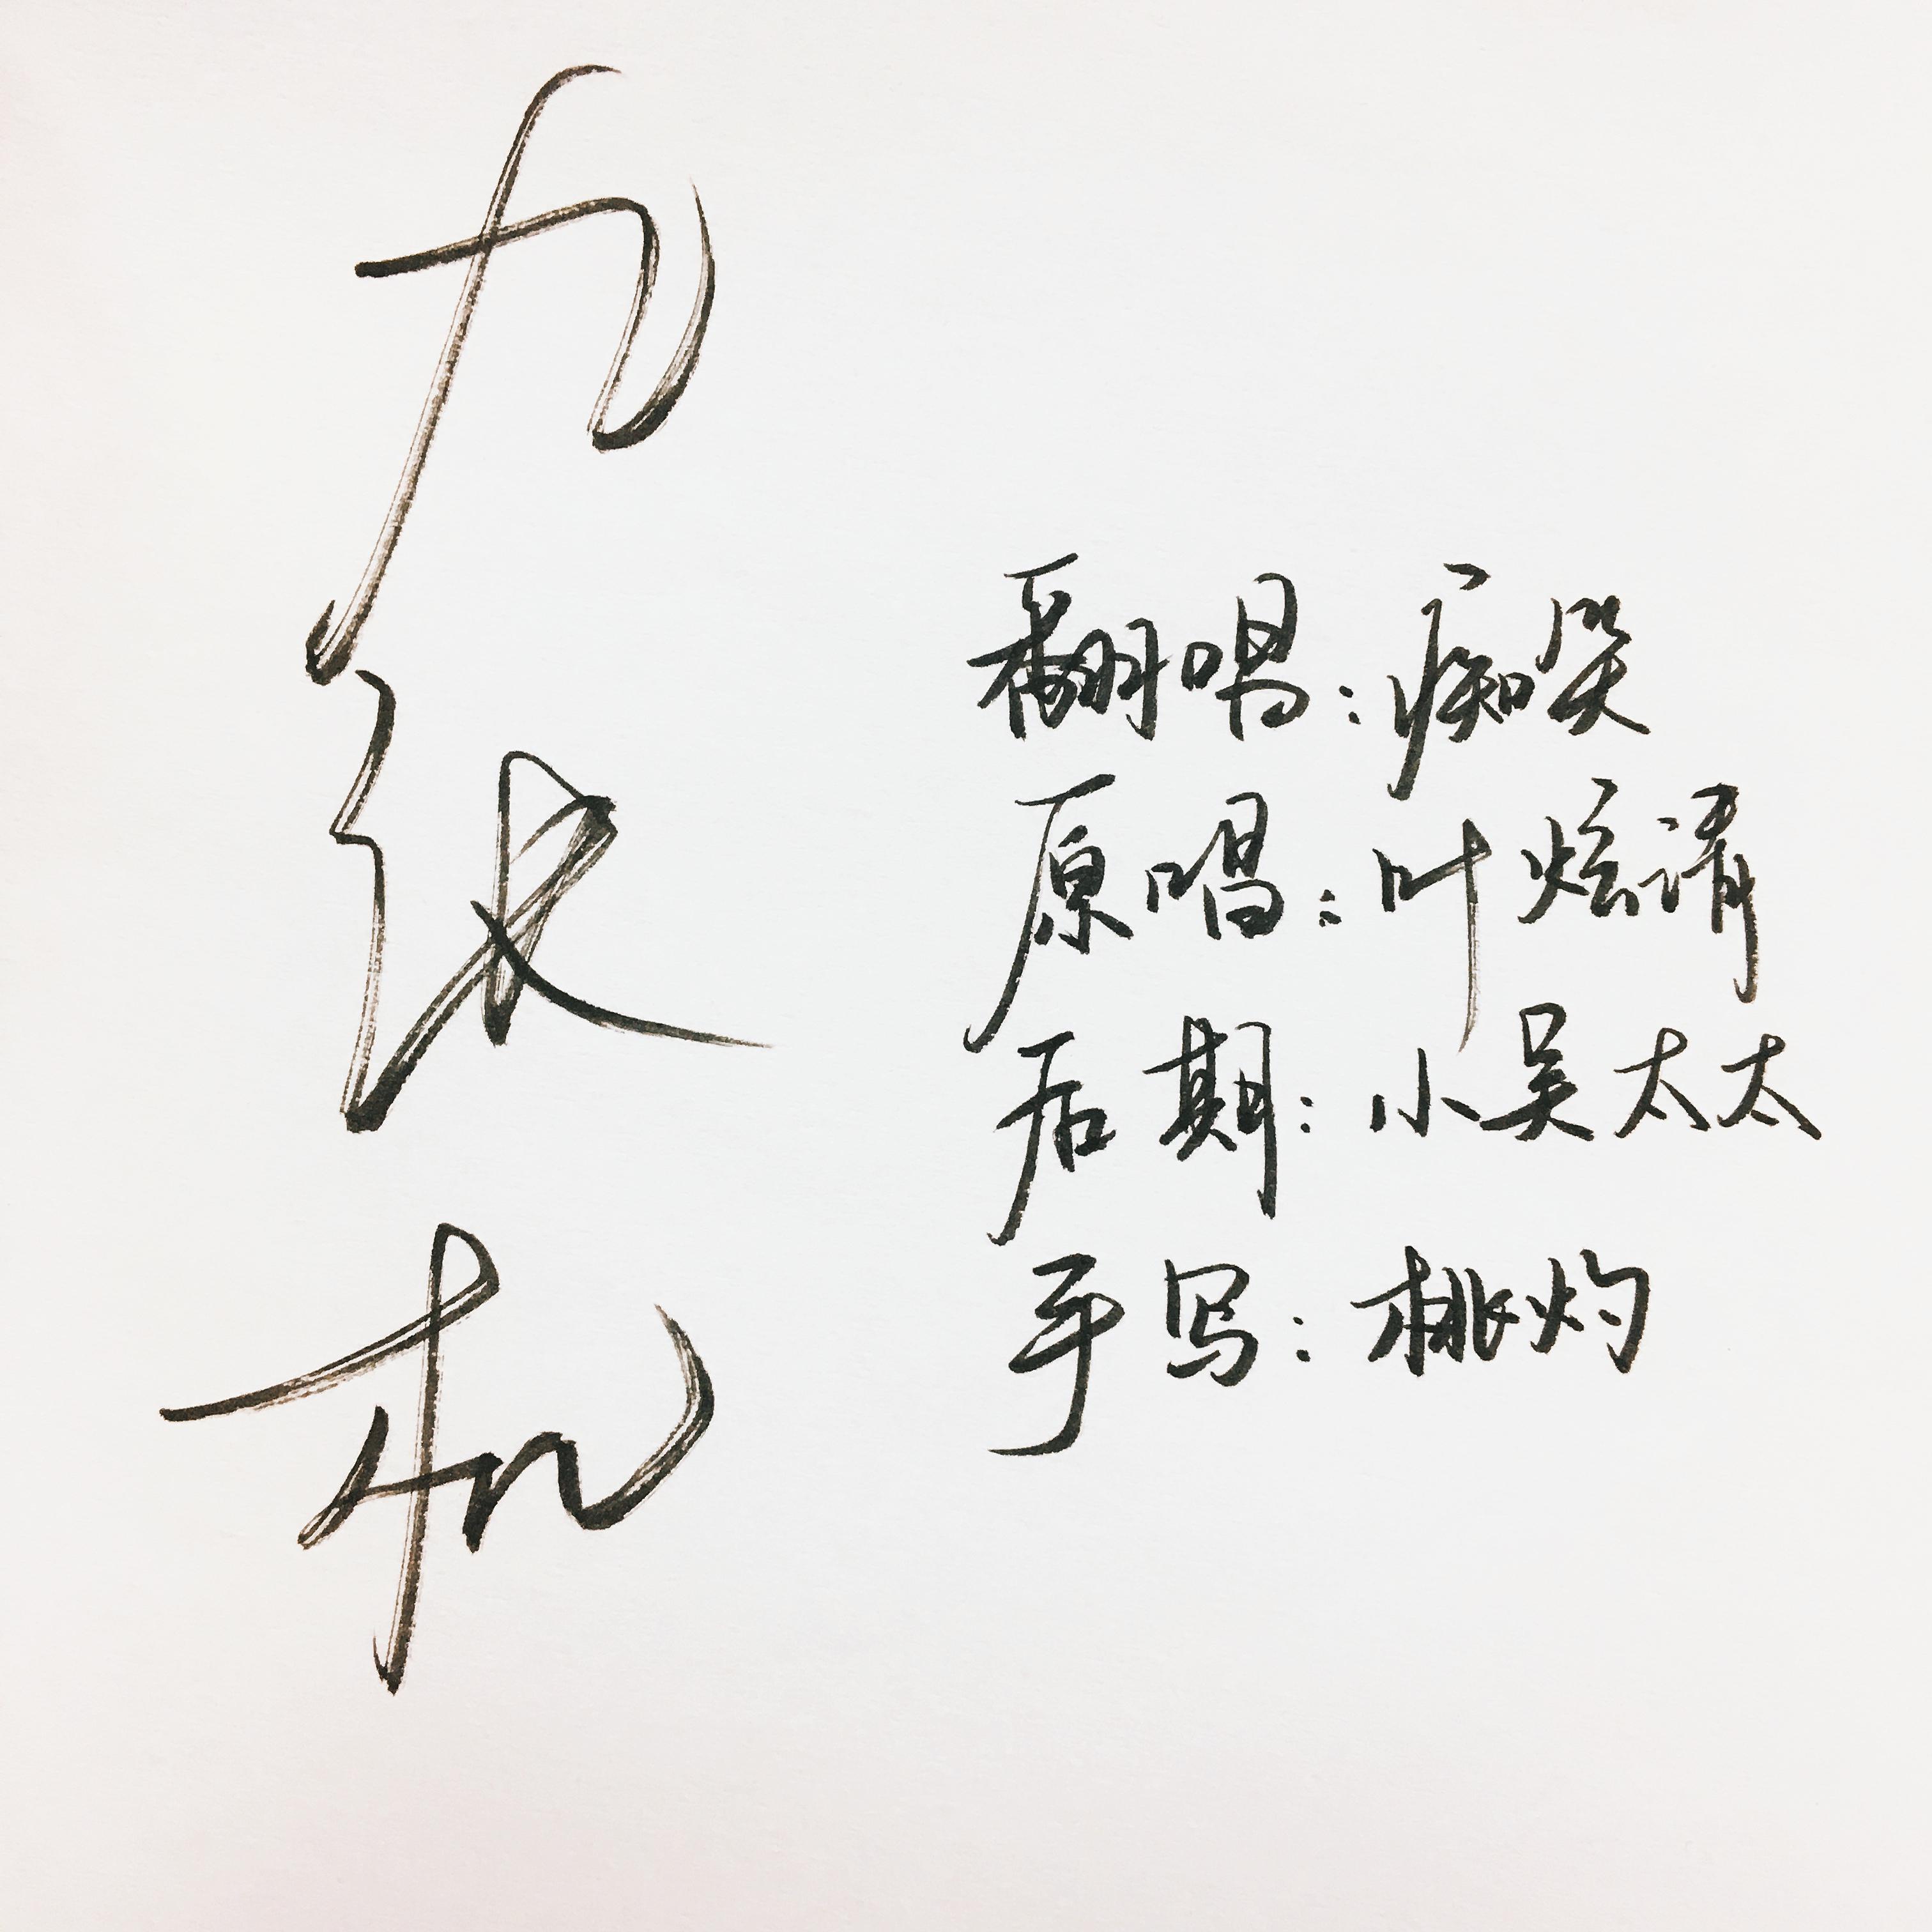 九张机
翻唱:痴笑
原唱:叶炫清
后期:小吴太太
手写:桃灼